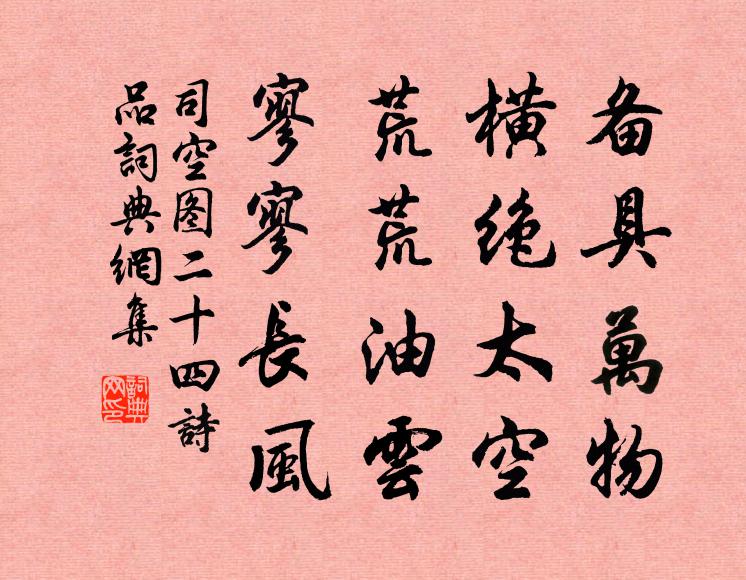 备具萬物
橫绝太空
荒荒油雲
寥寥長風
司空图二十四詩
品詞典網集
詞典
网印